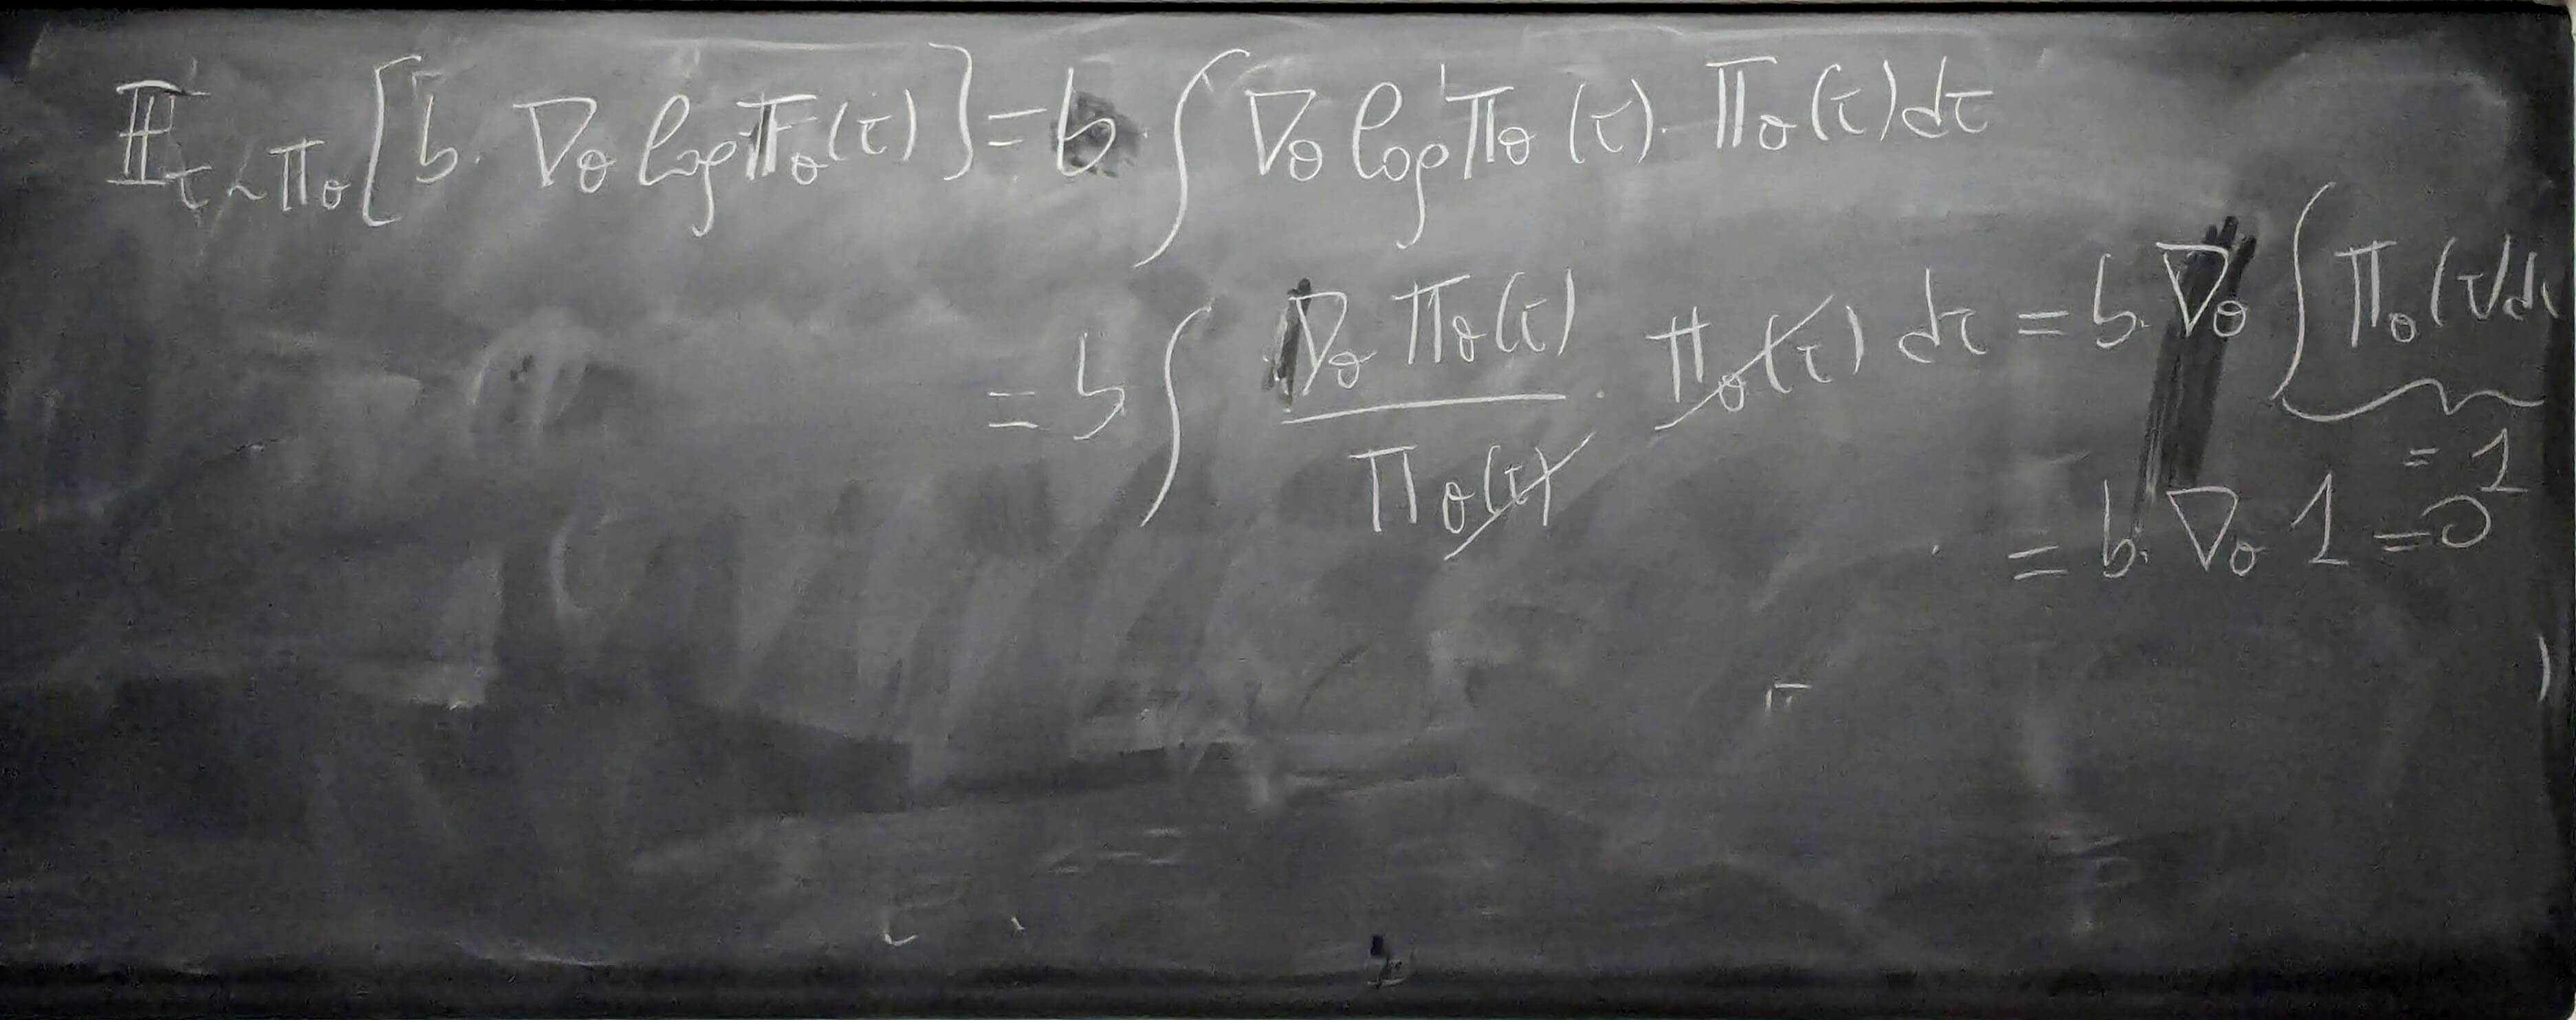 𝔼_{τ∼π_θ}[b · ∇_θ log π_θ(τ)] = b · ∫ ∇_θ log π_θ(τ) · π_θ(τ) dτ
= b ∫ (∇_θ π_θ(τ)) / (π_θ(τ)) · π_θ(τ) dτ = b · ∇_θ ∫ π_θ(τ) dτ
= 1
= b · ∇_θ 1 = 0